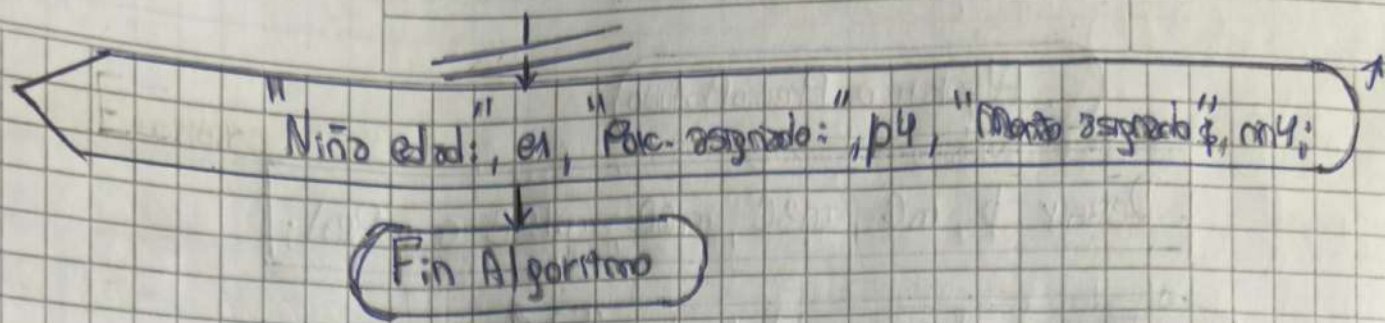 "Niño edad:", e1, "Porc. asignado:", p4, "Monto asignado"$, m4;
Fin Algoritmo